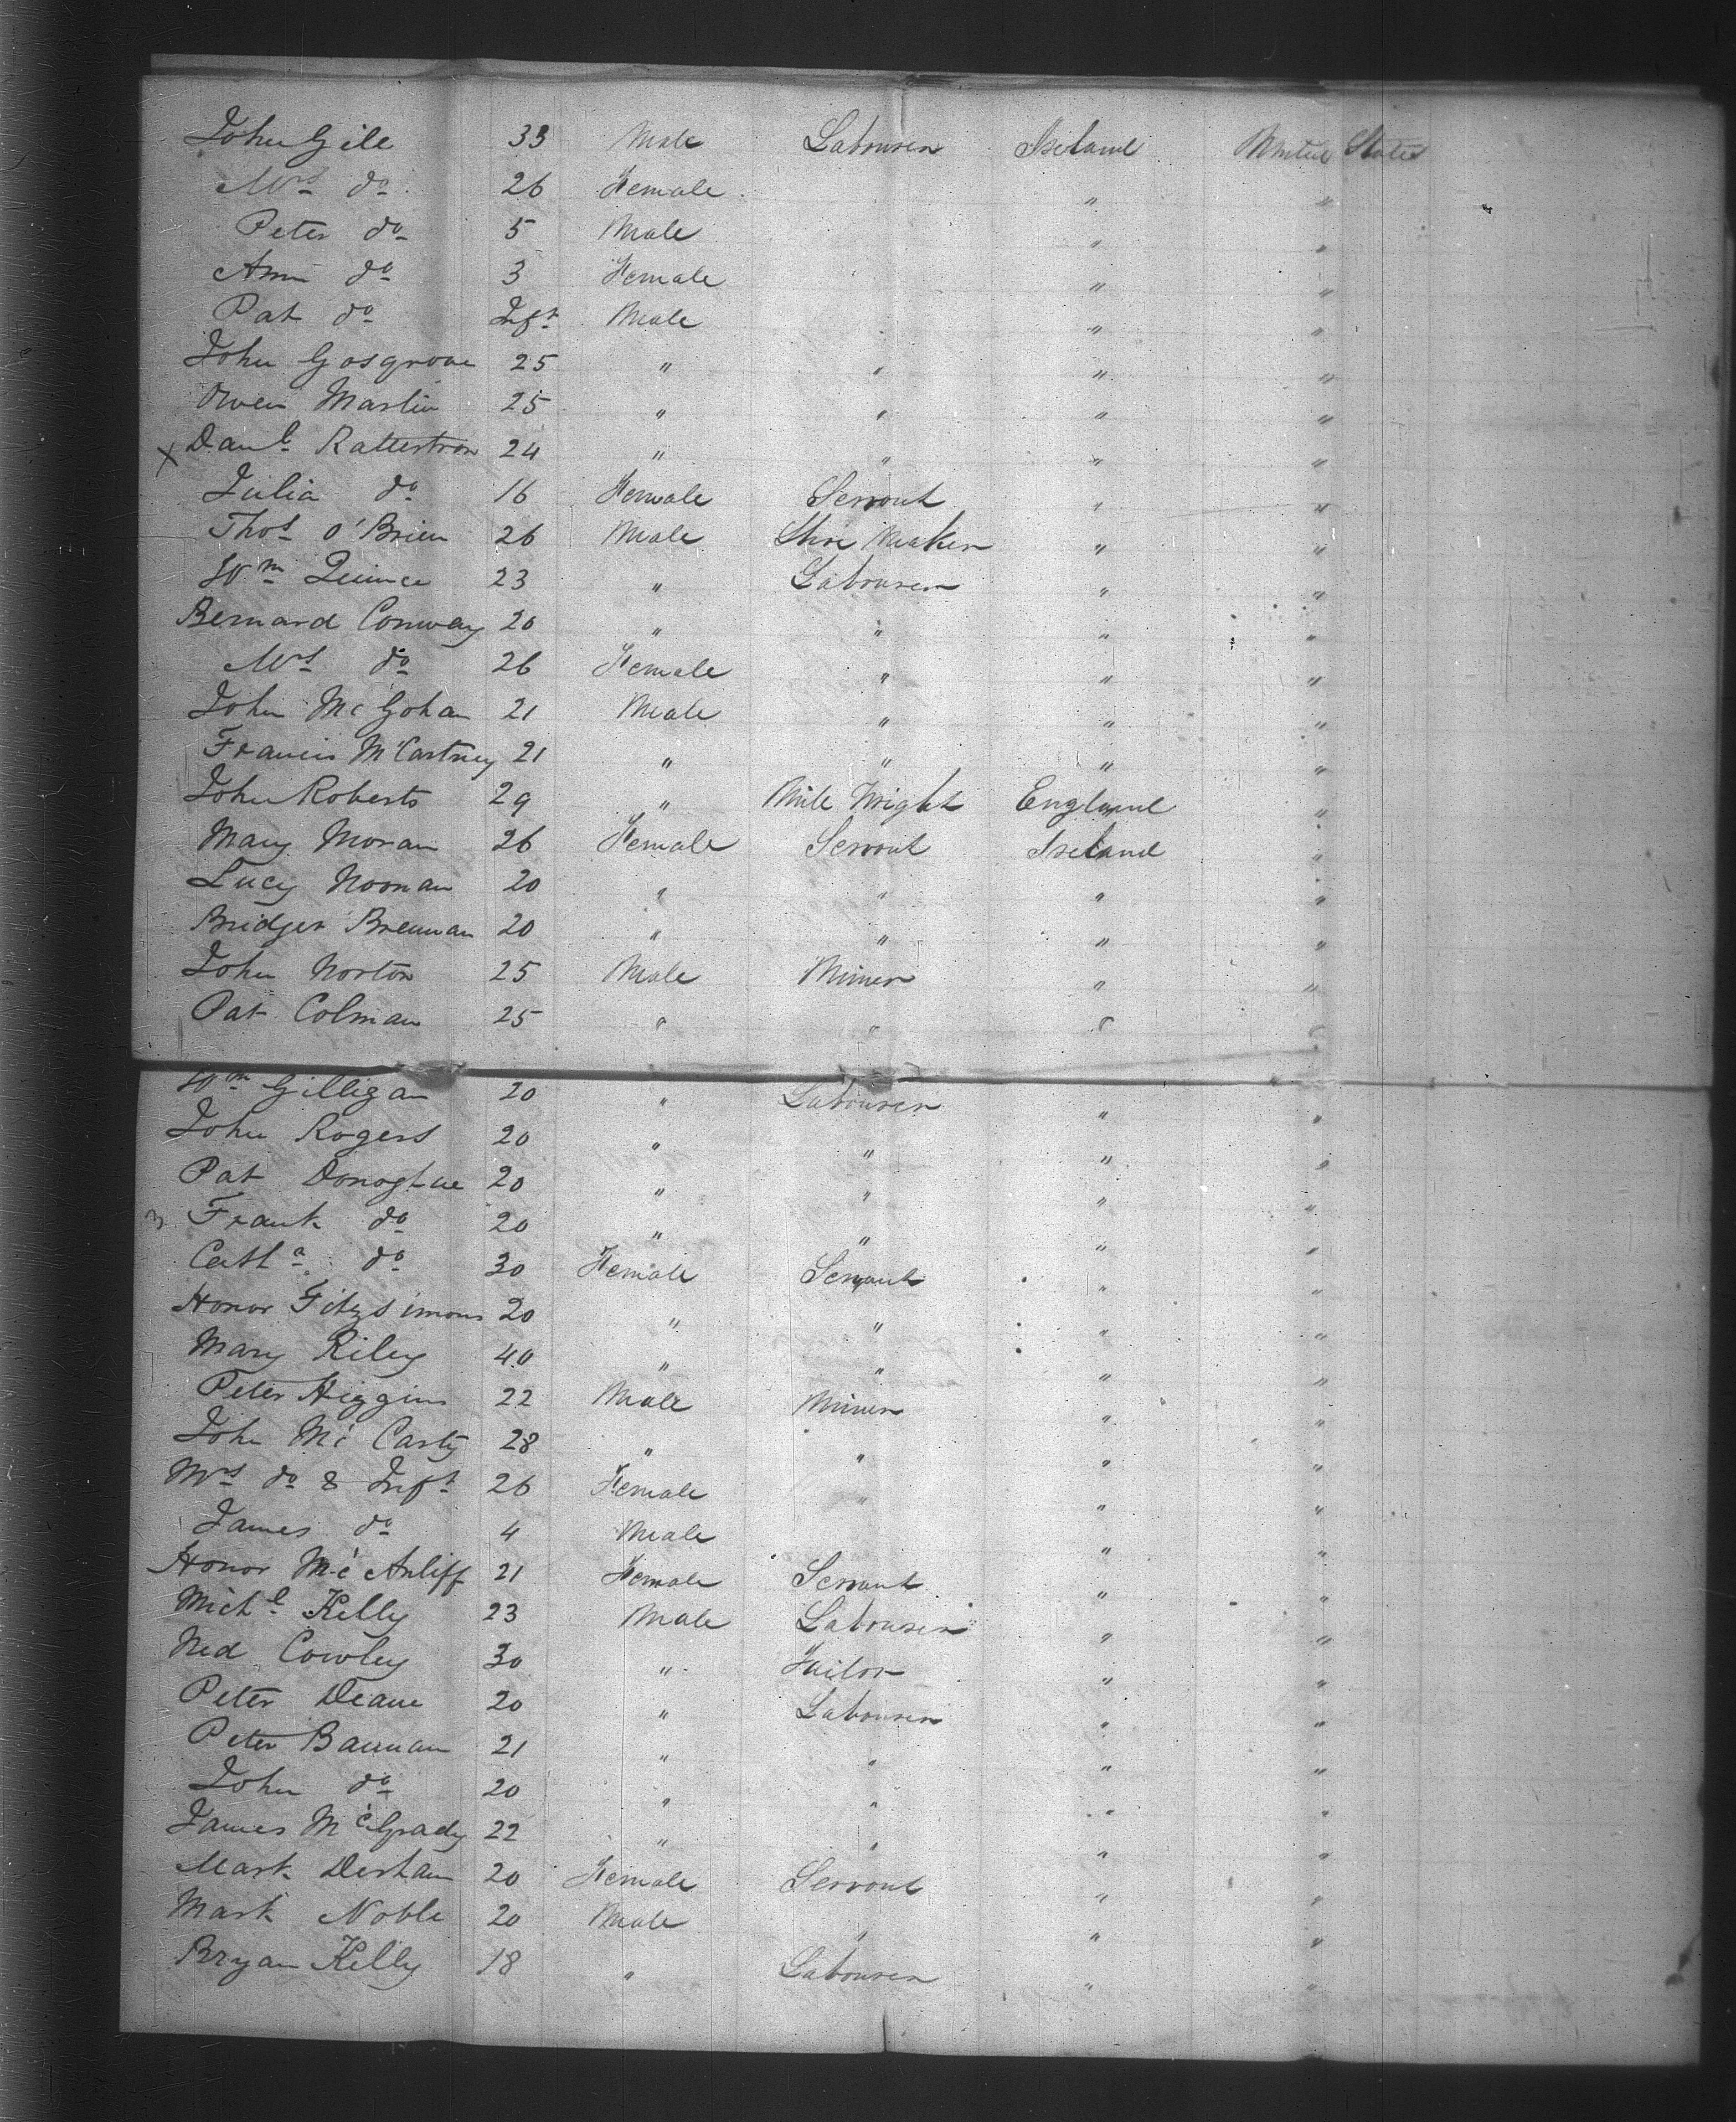 John Gile 33 Male Labourer Ireland United States
Mrs do 26 Female " "
Peter do 5 Male " "
Ann do 3 Female " "
Pat do Inft Male " "
John Gosgrove 25 " " " "
Owen Martin 25 " " " "
x Danl Ratterstron 24 " " " "
Julia do 16 Female Servant " "
Thos O'Brien 26 Male Shoe Maker " "
Wm Quince 23 " Labourer " "
Bernard Conway 20 " " " "
Mrs do 26 Female " " "
John McGohan 21 Male " " "
Francis McCartney 21 " " " "
John Roberts 29 " Mill Wright England "
Mary Moran 26 Female Servant Ireland "
Lucy Noonan 20 " " " "
Bridget Brennan 20 " " " "
John Norton 25 Male Miner " "
Pat Colman 25 " " " "
Wm Gilligan 20 " Labourer " "
John Rogers 20 " " " "
Pat Donoghue 20 " " " "
3 Frank do 20 " " " "
Catha do 30 Female Servant " "
Honor Fitzsimons 20 " " " "
Mary Riley 40 " " " "
Peter Higgins 22 Male Miner " "
John McCarty 28 " " " "
Mrs do & Inft 26 Female " " "
James do 4 Male " "
Honor McAnliff 21 Female Servant " "
Michl Kelly 23 Male Labourer " "
Ned Cowley 30 " Tailor " "
Peter Deane 20 " Labourer " "
Peter Bannan 21 " " " "
John do 20 " " " "
James McGrady 22 " " " "
Mark Derhan 20 Female Servant " "
Mark Noble 20 Male " " "
Bryan Kelly 18 " Labourer " "